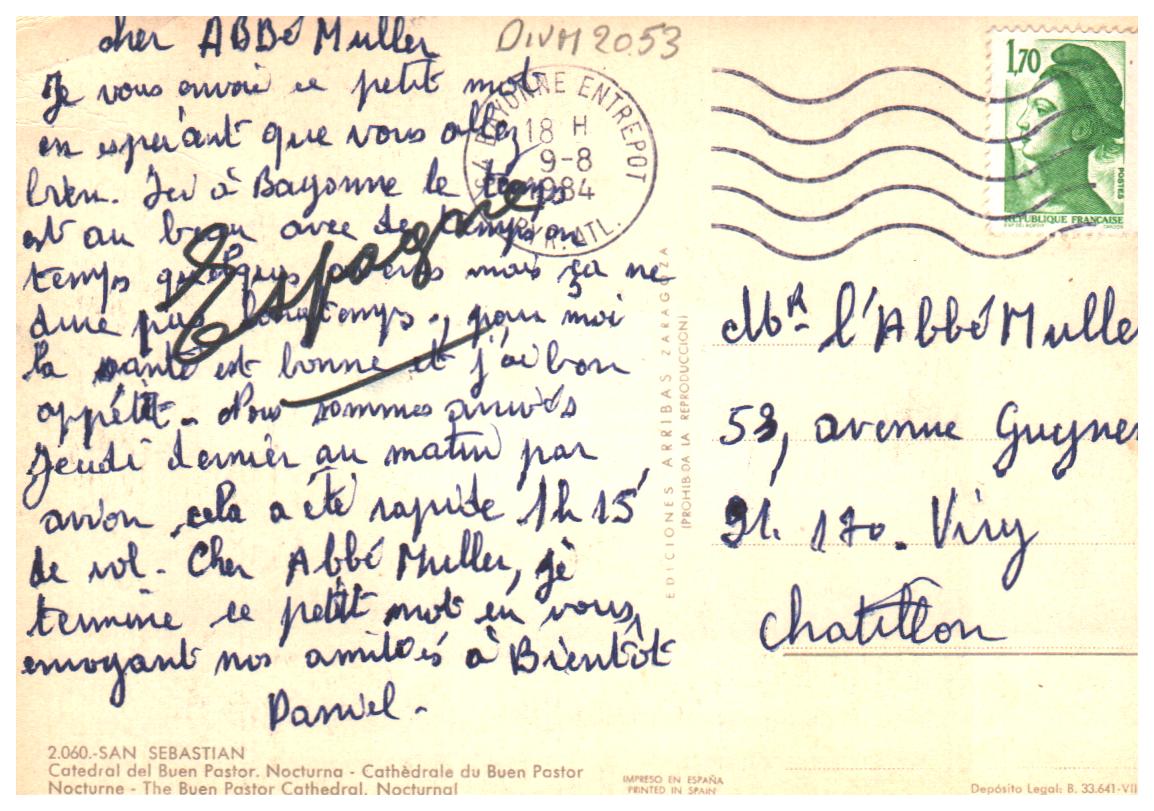 cher ABBé Muller
DIVM 2053
Je vous envoie ce petit mot
en espérant que vous allez
bien. Ici à Bayonne le temps
est au beau avec de temps en
temps quelques averses mais ça ne
dure pas longtemps., pour moi
la santé est bonne et j'ai bon
appétit. Nous sommes arrivés
Jeudi dernier au matin par
avion cela a été rapide 1h 15
de vol. Cher Abbé Muller, je
termine ce petit mot en vous
envoyant nos amitiés à Bientôt
Daniel.
Espagne
2.060.-SAN SEBASTIAN
Catedral del Buen Pastor. Nocturna - Cathèdrale du Buen Pastor
Nocturne - The Buen Pastor Cathedral. Nocturnal
EDICIONES ARRIBAS ZARAGOZA
(PROHIBIDA LA REPRODUCCION)
IMPRESO EN ESPAÑA
PRINTED IN SPAIN
64 BAYONNE ENTREPOT
18 H
9-8
1984
PYR. ATL.
1,70
POSTES
REPUBLIQUE FRANÇAISE
MR l'Abbé Mulle
53, avenue Guyne
91. 170. Viry
Chatillon
Depósito Legal: B. 33.641-VII